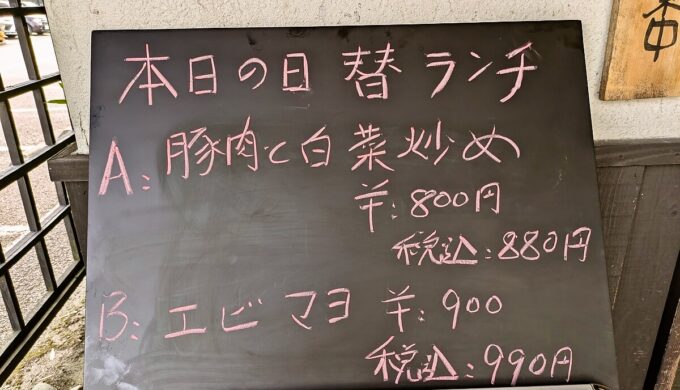 本日の日替ランチ
A:豚肉と白菜炒め
¥:800円
税込:880円
B:エビマヨ ¥:900
税込:990円